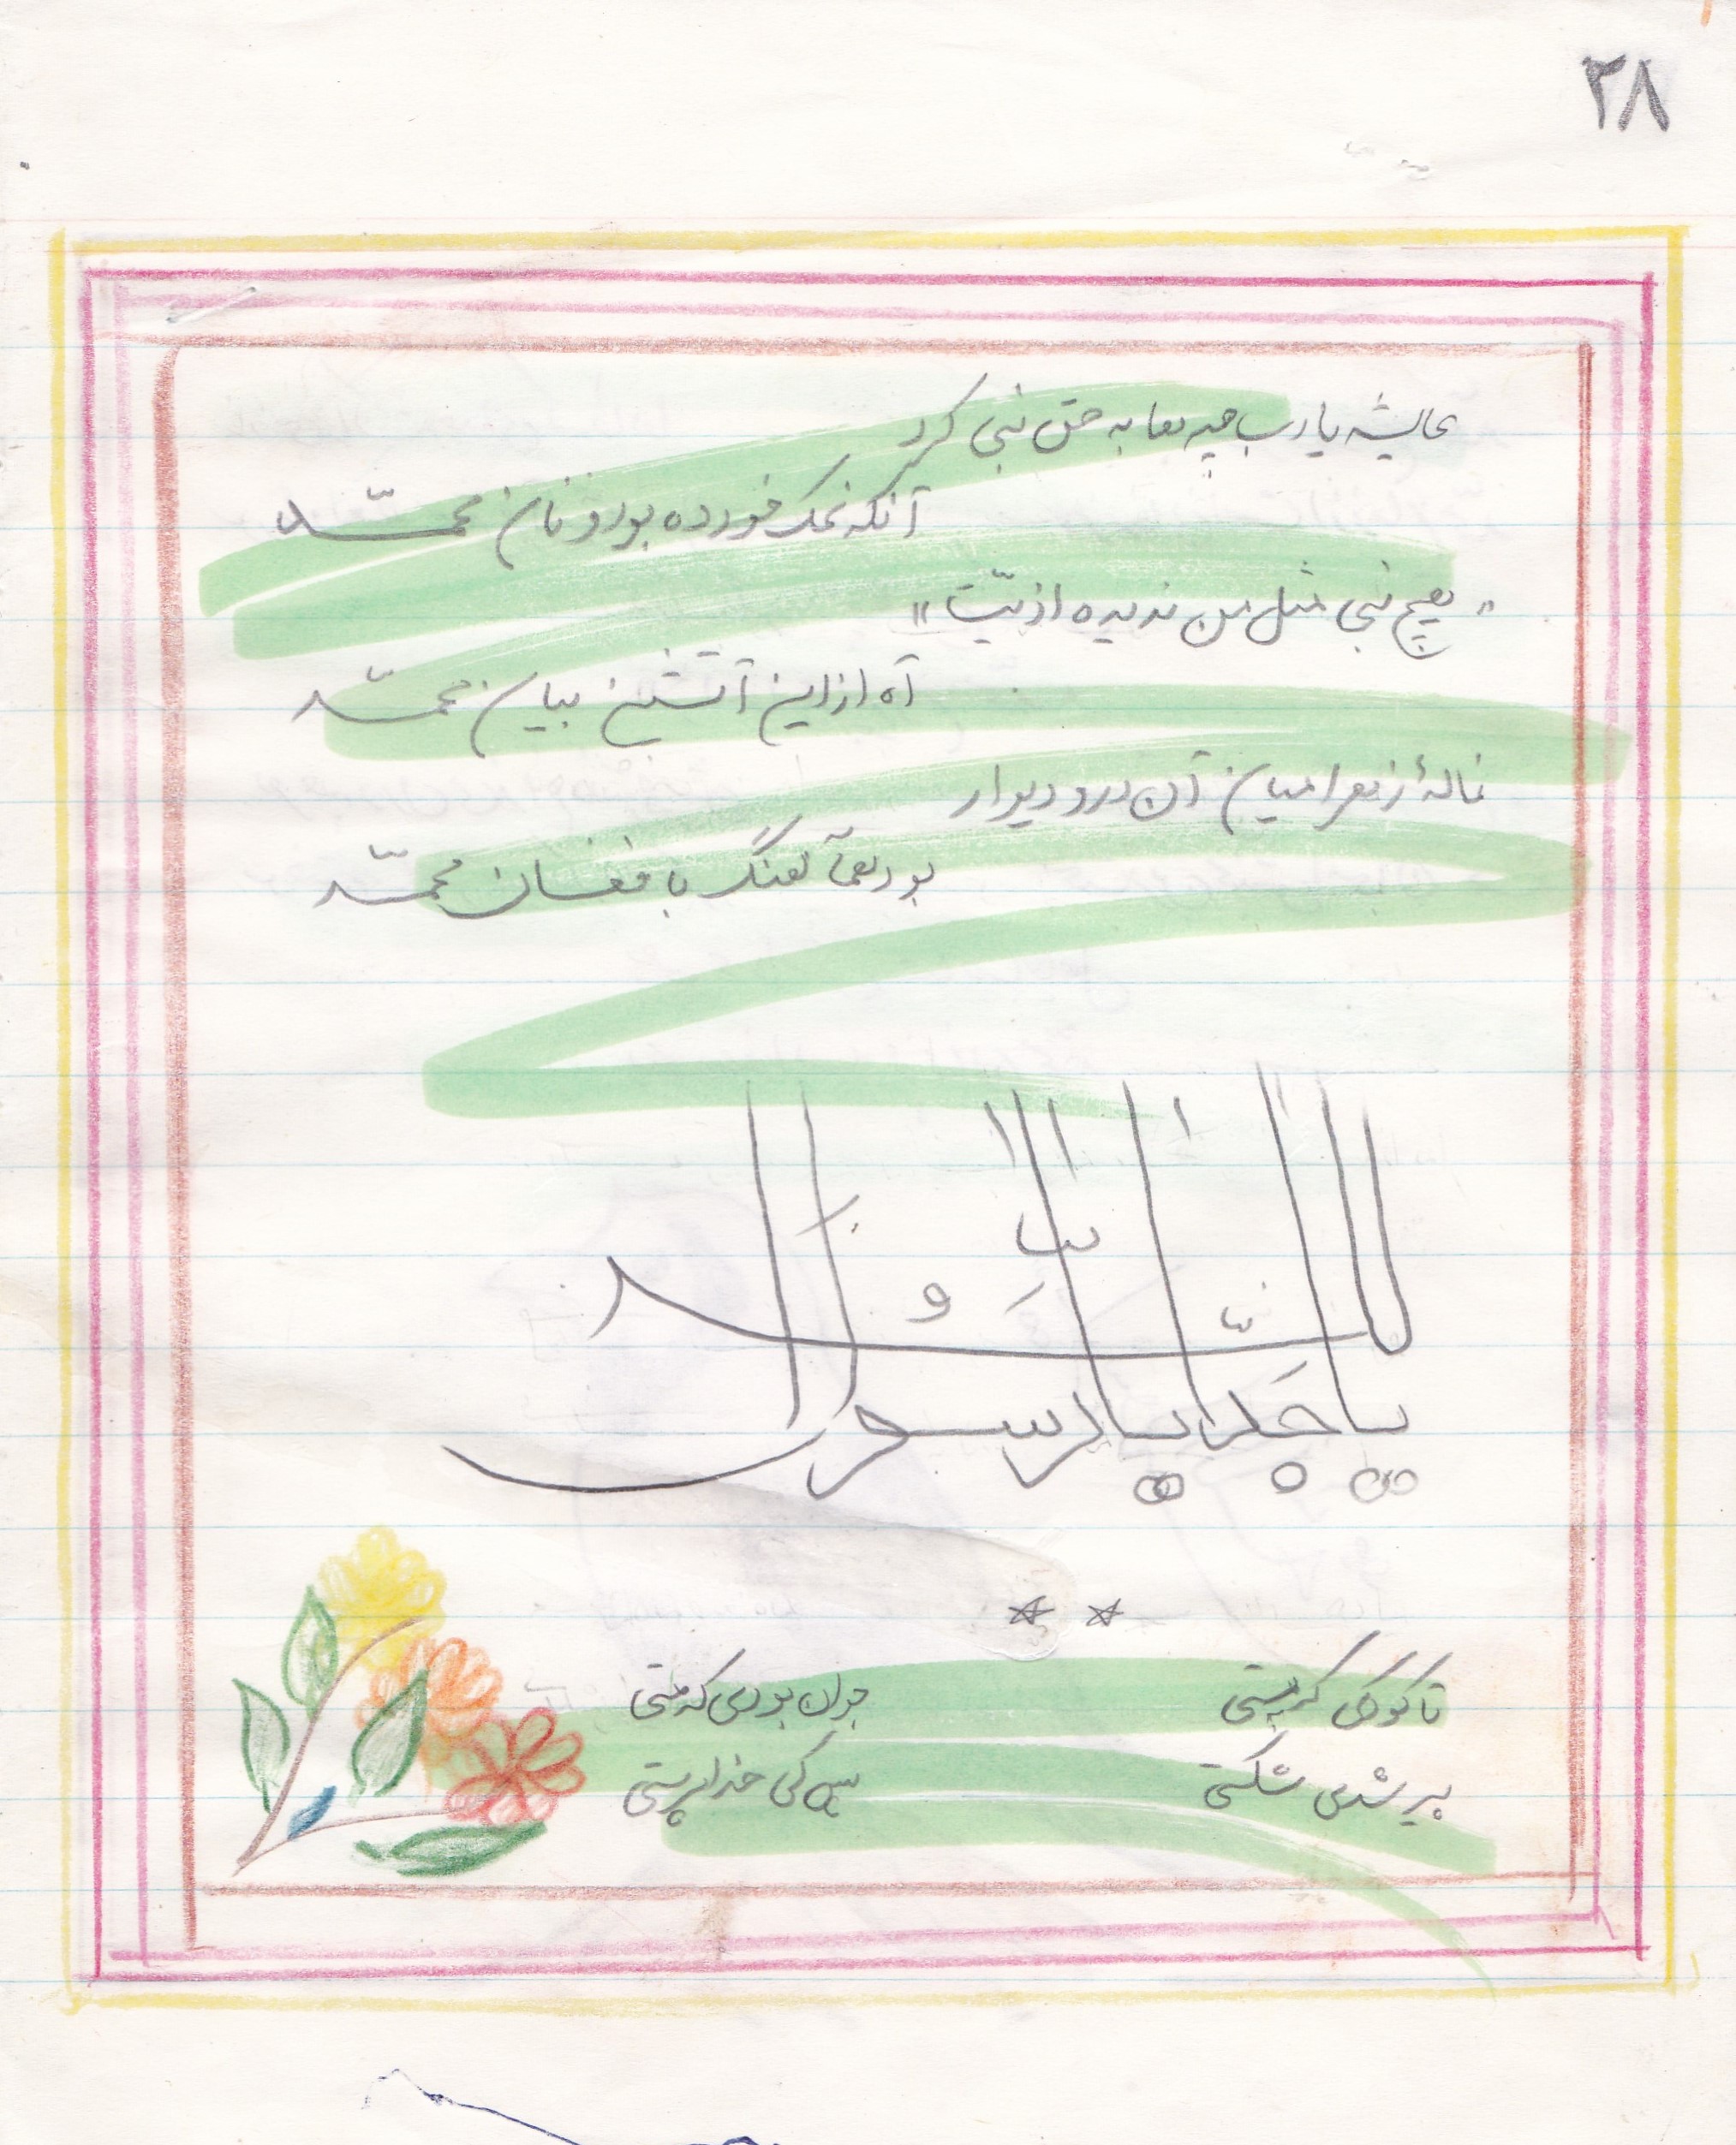 ۳۸
عایشه یا رب چه‌ها به حق نبی کرد
آنکه نمک خورده بود و نان محمّد
"هیچ نبی مثل من ندیده اذیّت"
آه از این آتشین بیان محمّد
نالهٔ زهرا میان آن در و دیوار
بود هم‌آهنگ با فغان محمّد
یا جداه یا رسول الله
تا کودکی پستی جوان بودی که مستی
پیر شدی شکستی پس کی خدا پرستی